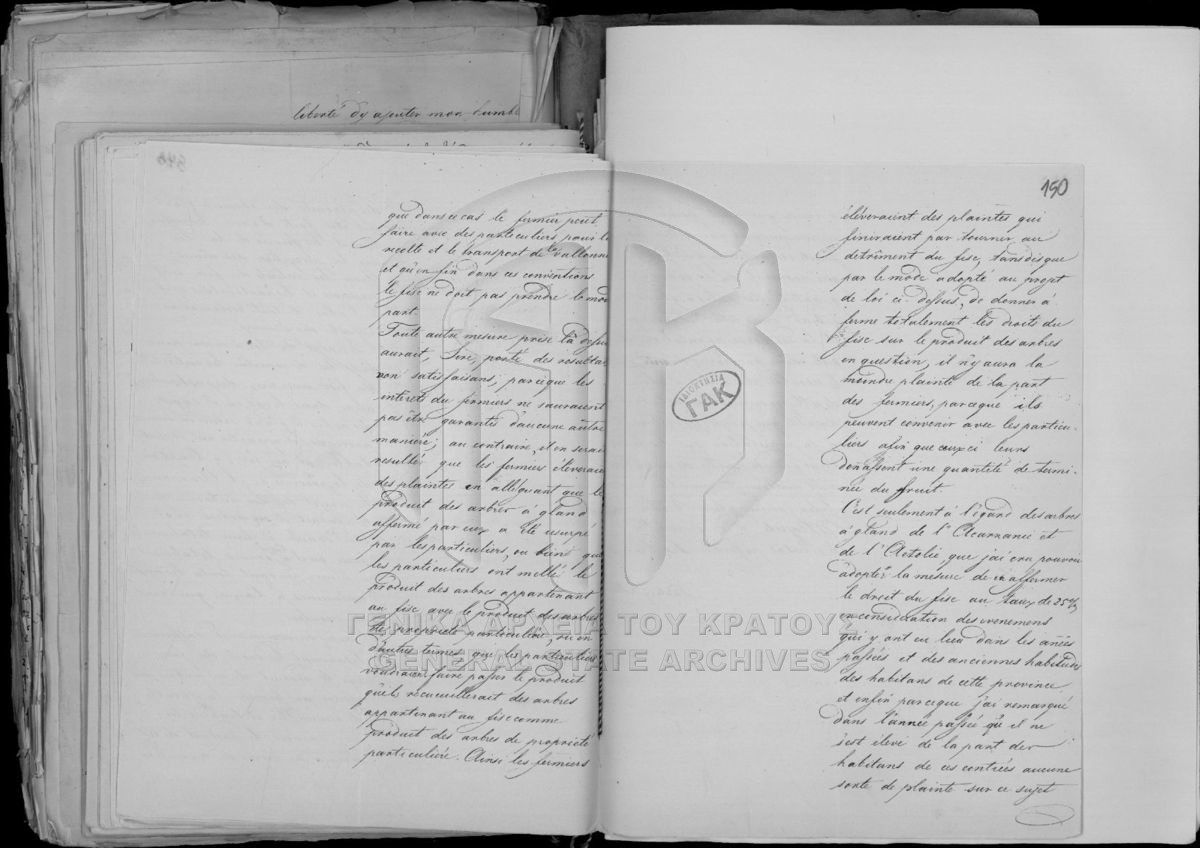 liberté d'y ajouter mon humb
546
que dans ce cas le fermier peut
faire avec des particuliers pour la
recolte et le transport de la vallonné
et qu'en fin dans ces conventions
le fisc ne doit pas prendre le moi
part.
Toute autre mesure prise là dessu
aurait, Sire, porté des résultat
non satisfaisans; parceque les
intérêts du fermiers ne sauraient
pas être garantis d'aucune autre
manière; au contraire, il en serait
resulté que les fermiers éleveraie
des plaintes en alléguant que le
produit des arbres à gland
affermé par eux a été usurpé
par les particuliers, ou bien que
les particuliers ont mellé le
produit des arbres appartenant
au fisc avec le produit des arbres
de propriété particulière, ou en
d'autres termes que les particuliers
voudraient faire passer le produit
qu'ils recueuillerait des arbres
appartenant au fisc comme
produit des arbres de propriété
particulière. Ainsi les fermiers
150
éléveraient des plaintes qui
finiraient par tourner au
detrîment du fisc, tandisque
par le mode adopté au projet
de loi ci-dessus, de donner à
ferme totalement les droits du
fisc sur le produit des arbres
en question, il n'y aura la
moindre plainte de la part
des fermiers, parceque ils
peuvent convenir avec les particu-
liers afin que ceux ci leurs
donassent une quantité de termi-
née du fruit.
C'est seulement à l'égard des arbres
à gland de l'Acarnanie et
de l'Aetolie que j'ai cru pouvoir
adopter la mesure de inaffermer
le droit du fisc au taux de 25%
en considération des evenemens
qui y ont eu lieu dans les anées
passées et des anciennes habitudes
des habitans de cette province
et enfin parceque j'ai remarqué
dans l'année passée qu'il ne
s'est élevé de la part des
habitans de ces contrées aucune
sorte de plainte sur ce sujet
ΙΔΙΟΚΤΗΣΙΑ
ΓΑΚ
ΓΕΝΙΚΑ ΑΡΧΕΙΑ ΤΟΥ ΚΡΑΤΟΥΣ
GENERAL STATE ARCHIVES